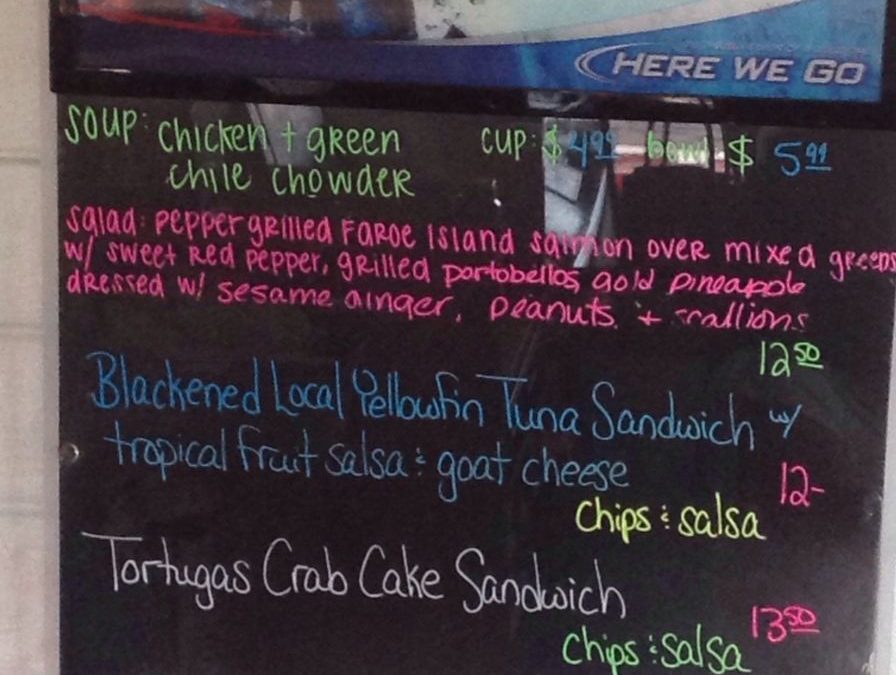 HERE WE GO
SOUP: Chicken + green cup: $4.99 bowl $ 5.99
chile chowder
salad: pepper grilled Faroe Island salmon over mixed greens
w/ sweet red pepper, grilled portobellos, gold pineapple
dressed w/ sesame ginger, peanuts, + scallions
12.50
Blackened Local Yellowfin Tuna Sandwich w/
tropical fruit salsa & goat cheese 12-
chips & salsa
Tortugas Crab Cake Sandwich
13.50
chips & salsa